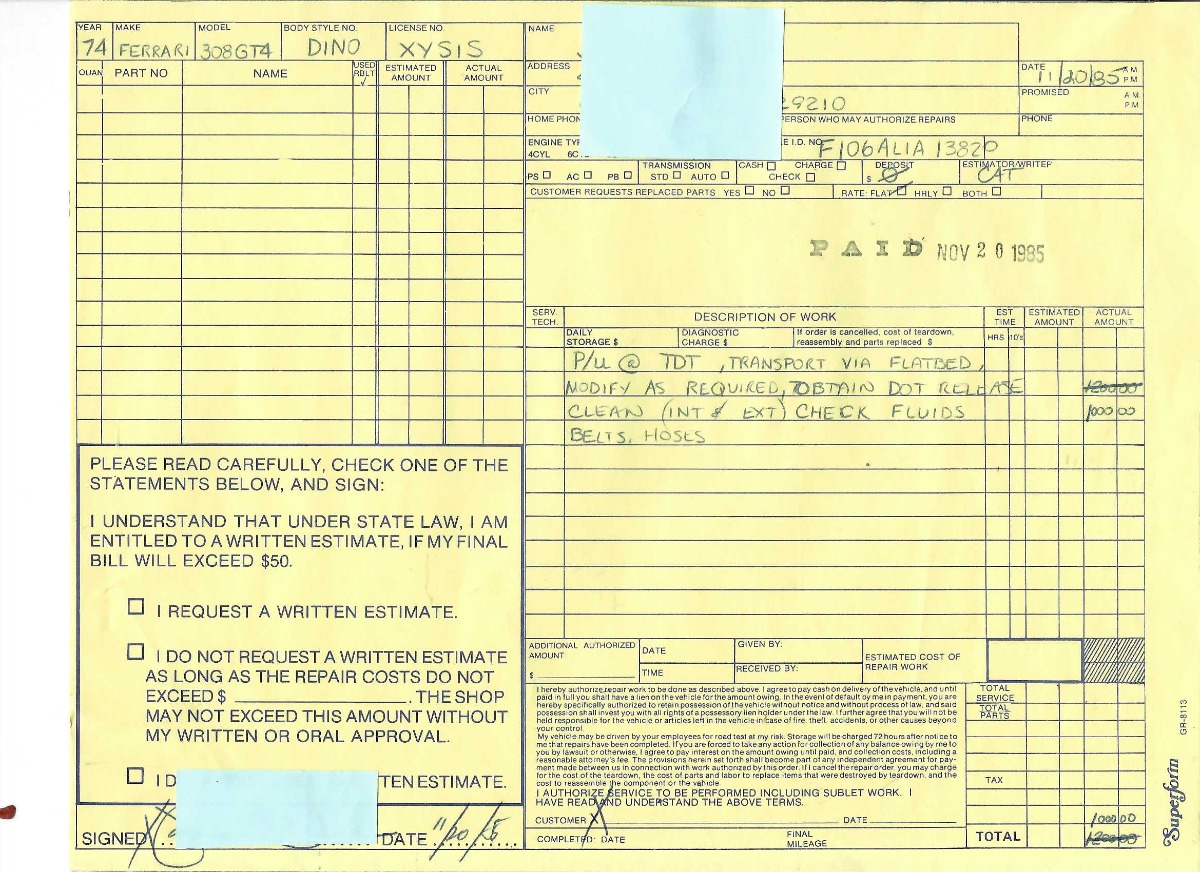 YEAR MAKE MODEL BODY STYLE NO. LICENSE NO. NAME
74 FERRARI 308GT4 DINO XYSIS
QUAN PART NO NAME USED RBLT ✓ ESTIMATED AMOUNT ACTUAL AMOUNT
ADDRESS DATE 11/20/85 AM PM
CITY 29210 PROMISED AM PM
HOME PHON PERSON WHO MAY AUTHORIZE REPAIRS PHONE
ENGINE TYP E I.D. NO. F106ALIA 13820
4CYL 6C
PS ☐ AC ☐ PB ☐ TRANSMISSION STD ☐ AUTO ☐ CASH ☐ CHARGE ☐ CHECK ☐ DEPOSIT $ Ø ESTIMATOR/WRITER CAT
CUSTOMER REQUESTS REPLACED PARTS YES ☐ NO ☐ RATE: FLAT ☐ HRLY ☐ BOTH ☐
PAID NOV 20 1985
SERV. TECH. DESCRIPTION OF WORK EST TIME ESTIMATED AMOUNT ACTUAL AMOUNT
DAILY STORAGE $ DIAGNOSTIC CHARGE $ If order is cancelled, cost of teardown, reassembly and parts replaced $ HRS 10's
P/U @ TDT , TRANSPORT VIA FLATBED,
MODIFY AS REQUIRED, OBTAIN DOT RELEASE 1200 00
CLEAN (INT & EXT) CHECK FLUIDS 1000 00
BELTS, HOSES
PLEASE READ CAREFULLY, CHECK ONE OF THE
STATEMENTS BELOW, AND SIGN:
I UNDERSTAND THAT UNDER STATE LAW, I AM
ENTITLED TO A WRITTEN ESTIMATE, IF MY FINAL
BILL WILL EXCEED $50.
☐ I REQUEST A WRITTEN ESTIMATE.
☐ I DO NOT REQUEST A WRITTEN ESTIMATE
AS LONG AS THE REPAIR COSTS DO NOT
EXCEED $ ____. THE SHOP
MAY NOT EXCEED THIS AMOUNT WITHOUT
MY WRITTEN OR ORAL APPROVAL.
☐ I D TEN ESTIMATE.
SIGNED X DATE 11/20/85
ADDITIONAL AUTHORIZED AMOUNT $ DATE TIME GIVEN BY: RECEIVED BY: ESTIMATED COST OF REPAIR WORK
I hereby authorize repair work to be done as described above. I agree to pay cash on delivery of the vehicle, and until
paid in full you shall have a lien on the vehicle for the amount owing. In the event of default by me in payment, you are
hereby specifically authorized to retain possession of the vehicle without notice and without process of law, and said
possession shall invest you with all rights of a possessory lien holder under the law. I further agree that you will not be
held responsible for the vehicle or articles left in the vehicle in case of fire, theft, accidents, or other causes beyond
your control.
My vehicle may be driven by your employees for road test at my risk. Storage will be charged 72 hours after notice to
me that repairs have been completed. If you are forced to take any action for collection of any balance owing by me to
you by lawsuit or otherwise, I agree to pay interest on the amount owing until paid, and collection costs, including a
reasonable attorney's fee. The provisions herein set forth shall become part of any independent agreement for pay-
ment made between us in connection with work authorized by this order. If I cancel the repair order, you may charge
for the cost of the teardown, the cost of parts and labor to replace items that were destroyed by teardown, and the
cost to reassemble the component or the vehicle.
I AUTHORIZE SERVICE TO BE PERFORMED INCLUDING SUBLET WORK. I
HAVE READ AND UNDERSTAND THE ABOVE TERMS.
CUSTOMER X DATE
COMPLETED: DATE FINAL MILEAGE
TOTAL SERVICE
TOTAL PARTS
TAX
1000 00
TOTAL 1200 00
GR-8113
Superform